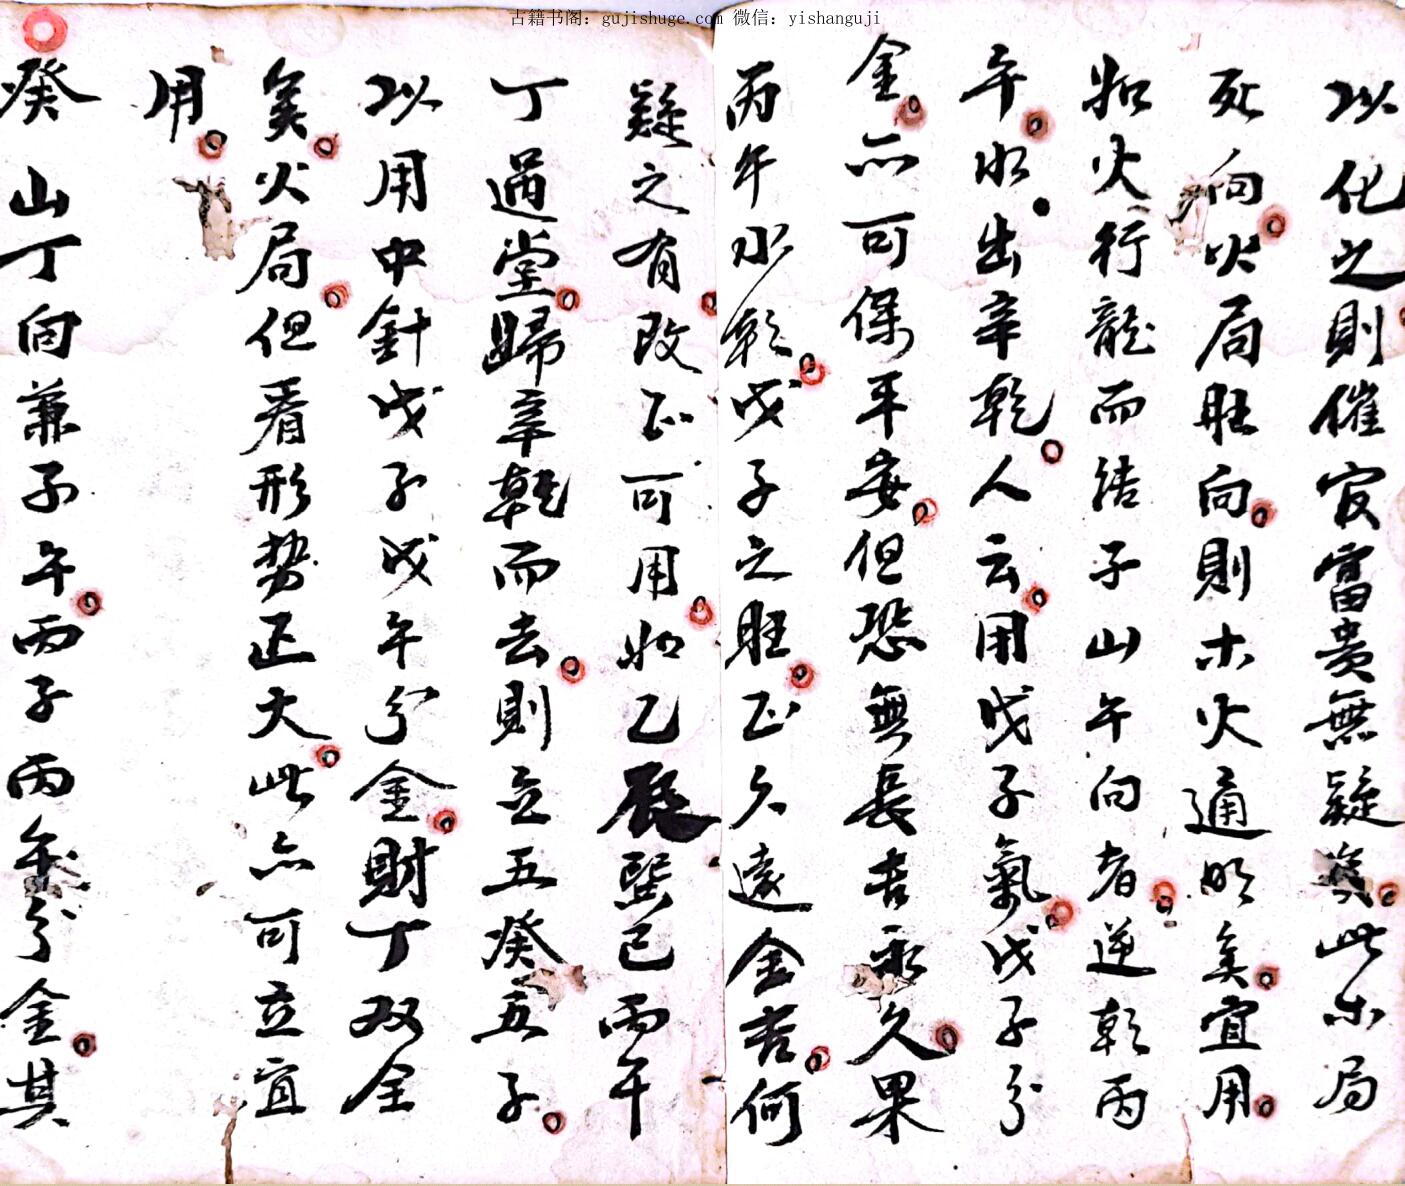 古籍书阁：gujishuge.com 微信：yishanguji
以化之則催官富貴無疑矣此木局
死向火局旺向則木火通明矣宜用
如火行龍而結子山午向者逆乾丙
午水出辛乾人云用戊子氣戊子分
金亦可保平安但恐無長吉永久果
丙午水乾戊子之旺正久遠金吉何
疑之有改正可用如乙辰巽巳丙午
丁過堂歸辛乾而去則立五癸五子
以用中針戊子戊午分金財丁双全
矣火局但看形势正大此亦可立宜
用
癸山丁向兼子午丙子丙午分金其